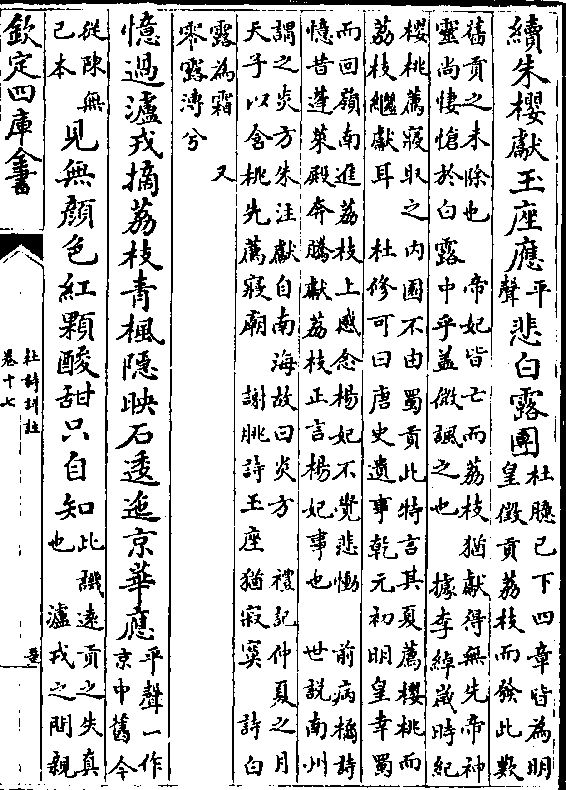 續朱櫻獻玉座應平聲悲白露團杜臆已下四章皆為明皇徵貢荔枝而發此歎
舊貢之未除也 帝妃皆亡而荔枝猶獻得無先帝神
靈尚悽愴於白露中乎蓋微諷之也 據李綽歲時紀
櫻桃薦寢取之内園不由蜀貢此特言其夏薦櫻桃而
荔枝繼獻耳 杜修可曰唐史遺事乾元初明皇幸蜀
而回嶺南進荔枝上感念楊妃不覺悲慟 前病橘詩
憶昔蓬萊殿奔騰獻荔枝正言楊妃事也 世説南州
謂之炎方朱注獻自南海故曰炎方 禮記仲夏之月
天子以含桃先薦寢廟 謝朓詩玉座猶寂寞 詩白
露為霜 又
零露漙兮
憶過瀘戎摘荔枝青楓隱映石逶迤京華應平聲一作京中舊今
從陳無己本見無顔色紅顆酸甜只自知此譏遠貢之失真也 瀘戎之間親
欽定四庫全書
杜詩詳註
卷十七